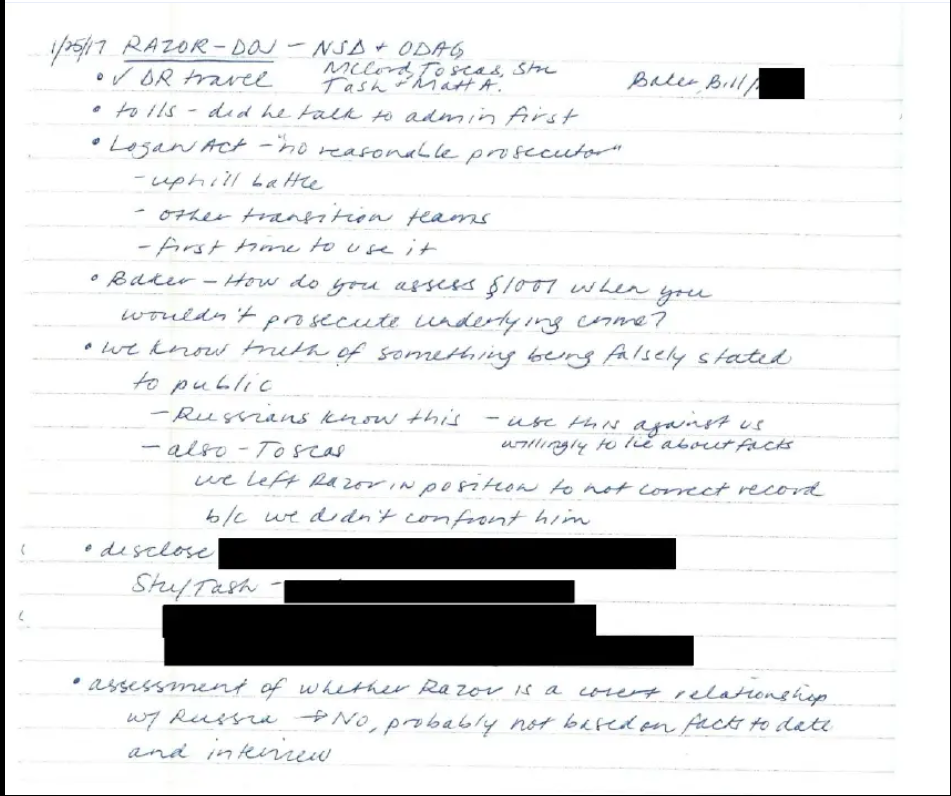 1/25/17 RAZOR - DOJ - NSD + ODAG
• ✓ DR travel McCord, Toscas, Stu Baker, Bill/
Tash + Matt A.
• tolls - did he talk to admin first
• Logan Act - "no reasonable prosecutor"
- uphill battle
- other transition teams
- first time to use it
• Baker - How do you assess §1001 when you
wouldn't prosecute underlying crime?
• we know truth of something being falsely stated
to public
- Russians know this - use this against us
willingly to lie about facts
- also - Toscas
we left Razor in position to not correct record
b/c we didn't confront him
• disclose
Stu/Tash -
• assessment of whether Razor is a covert relationship
w/ Russia → No, probably not based on facts to date
and interview